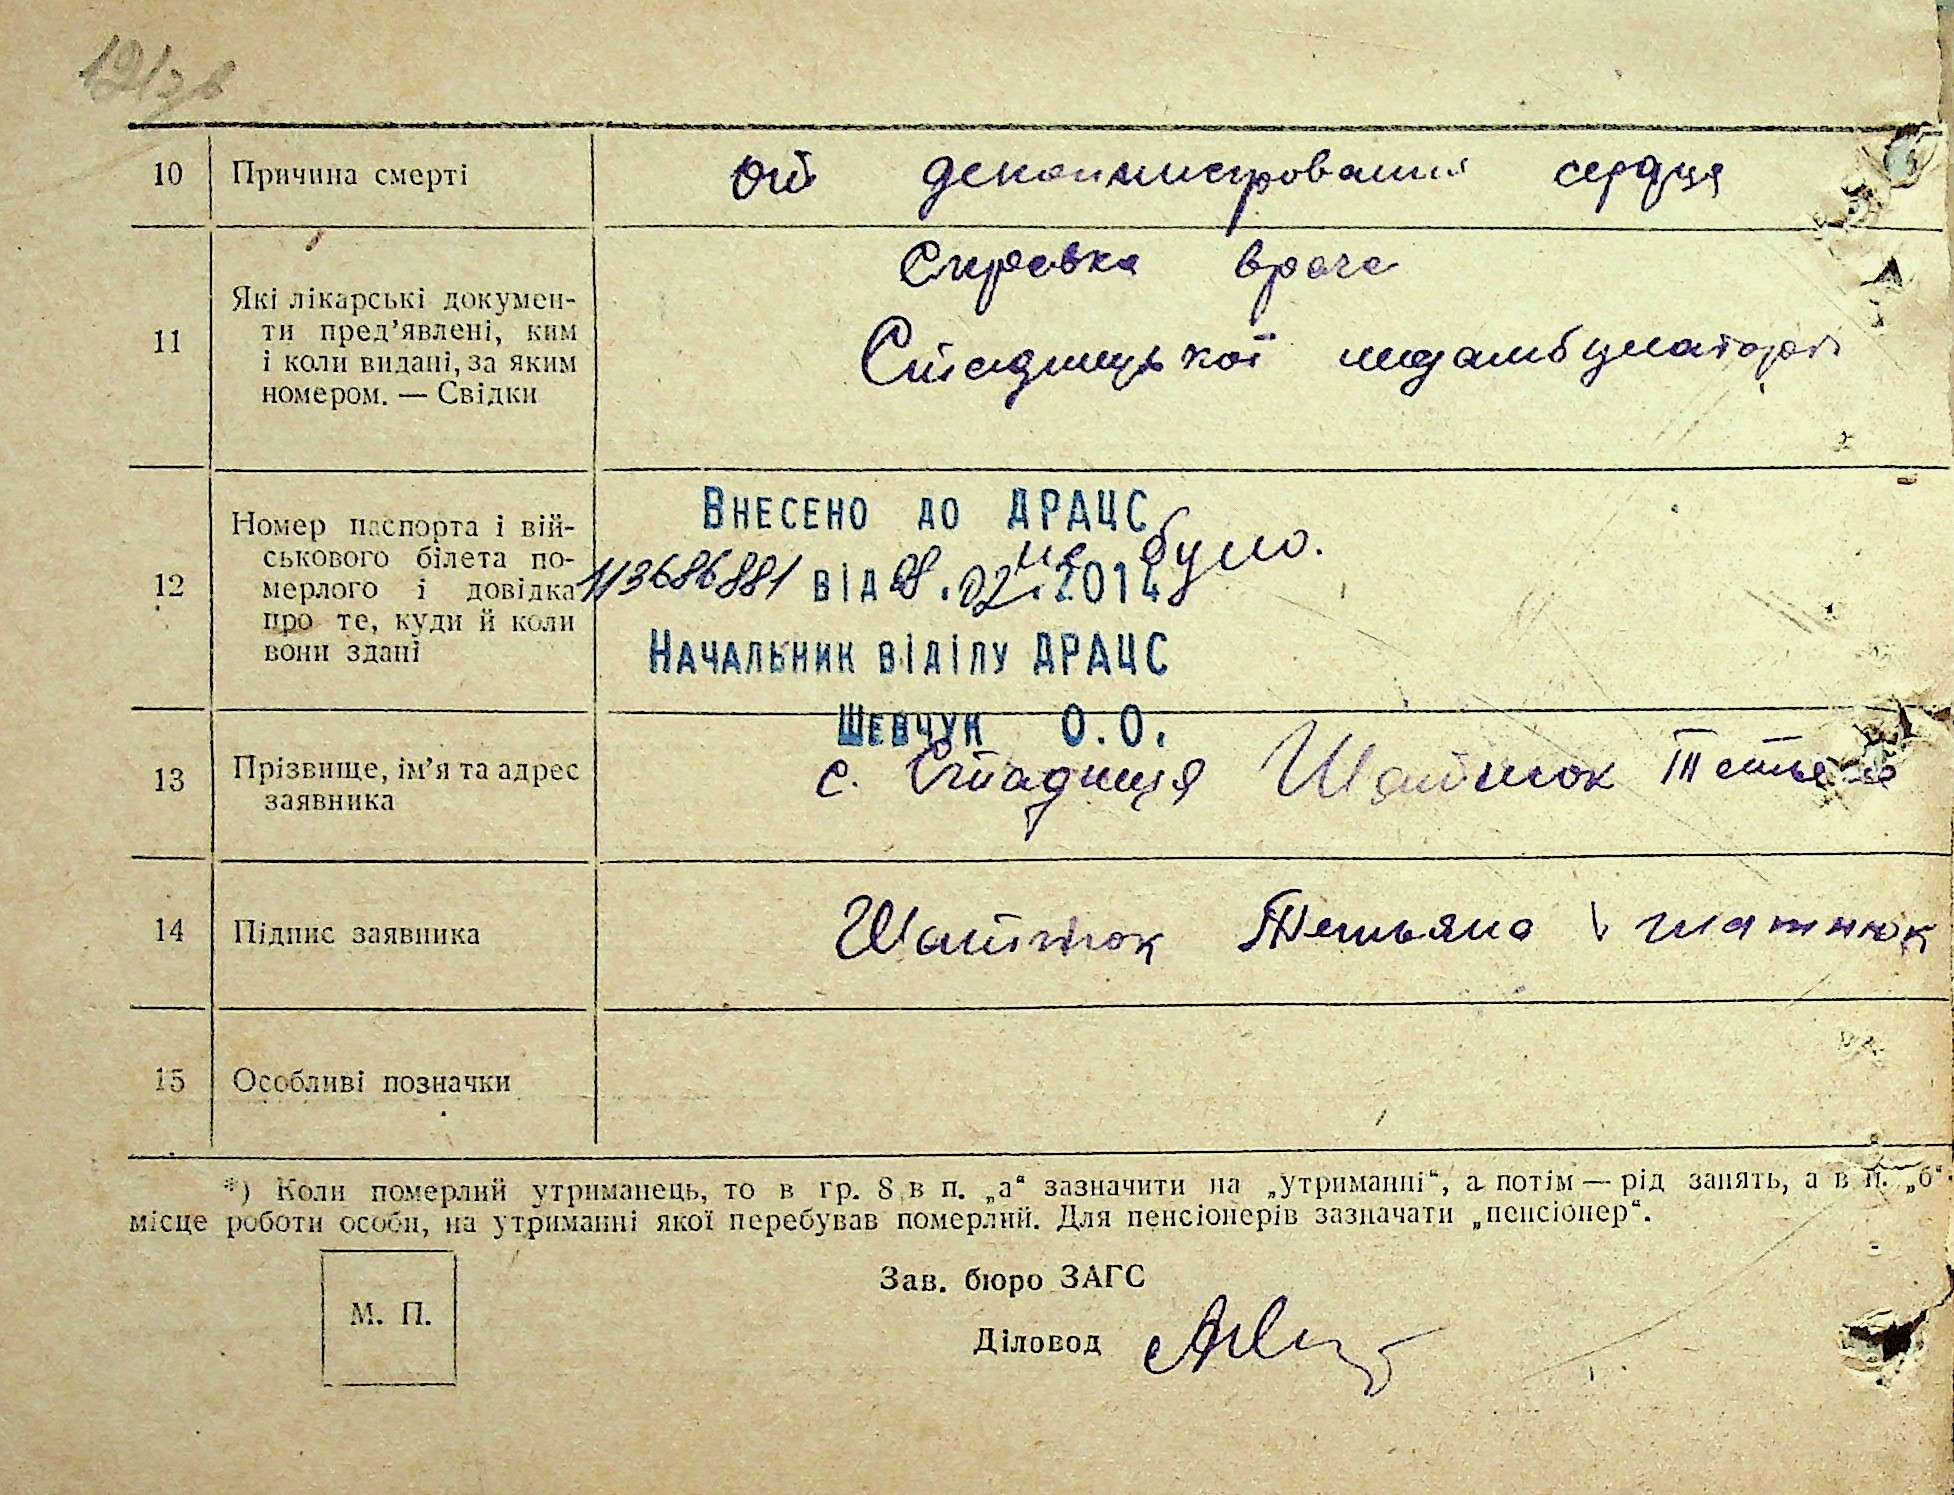 10 Причина смерті
от декомпенсированния сердця
11 Які лікарські докумен-
ти пред’явлені, ким
і коли видані, за яким
номером. — Свідки
Справка врача
Стадницької медамбулаторії
12 Номер паспорта і вій-
ськового білета по-
мерлого і довідка
про те, куди й коли
вони здані
не було.
Внесено до ДРАЦС
113686881 від 28.02.2014
Начальник відділу ДРАЦС
Шевчук О.О.
13 Прізвище, ім’я та адрес
заявника
с. Стадниця Шатнюк Тетьяна
14 Підпис заявника
Шатнюк Тетьяна \ шатнюк
15 Особливі позначки
*) Коли померлий утриманець, то в гр. 8 в п. „а“ зазначити на „утриманні“, а потім — рід занять, а в п. „б“
місце роботи особи, на утриманні якої перебував померлий. Для пенсіонерів зазначати „пенсіонер“.
М. П.
Зав. бюро ЗАГС
Діловод